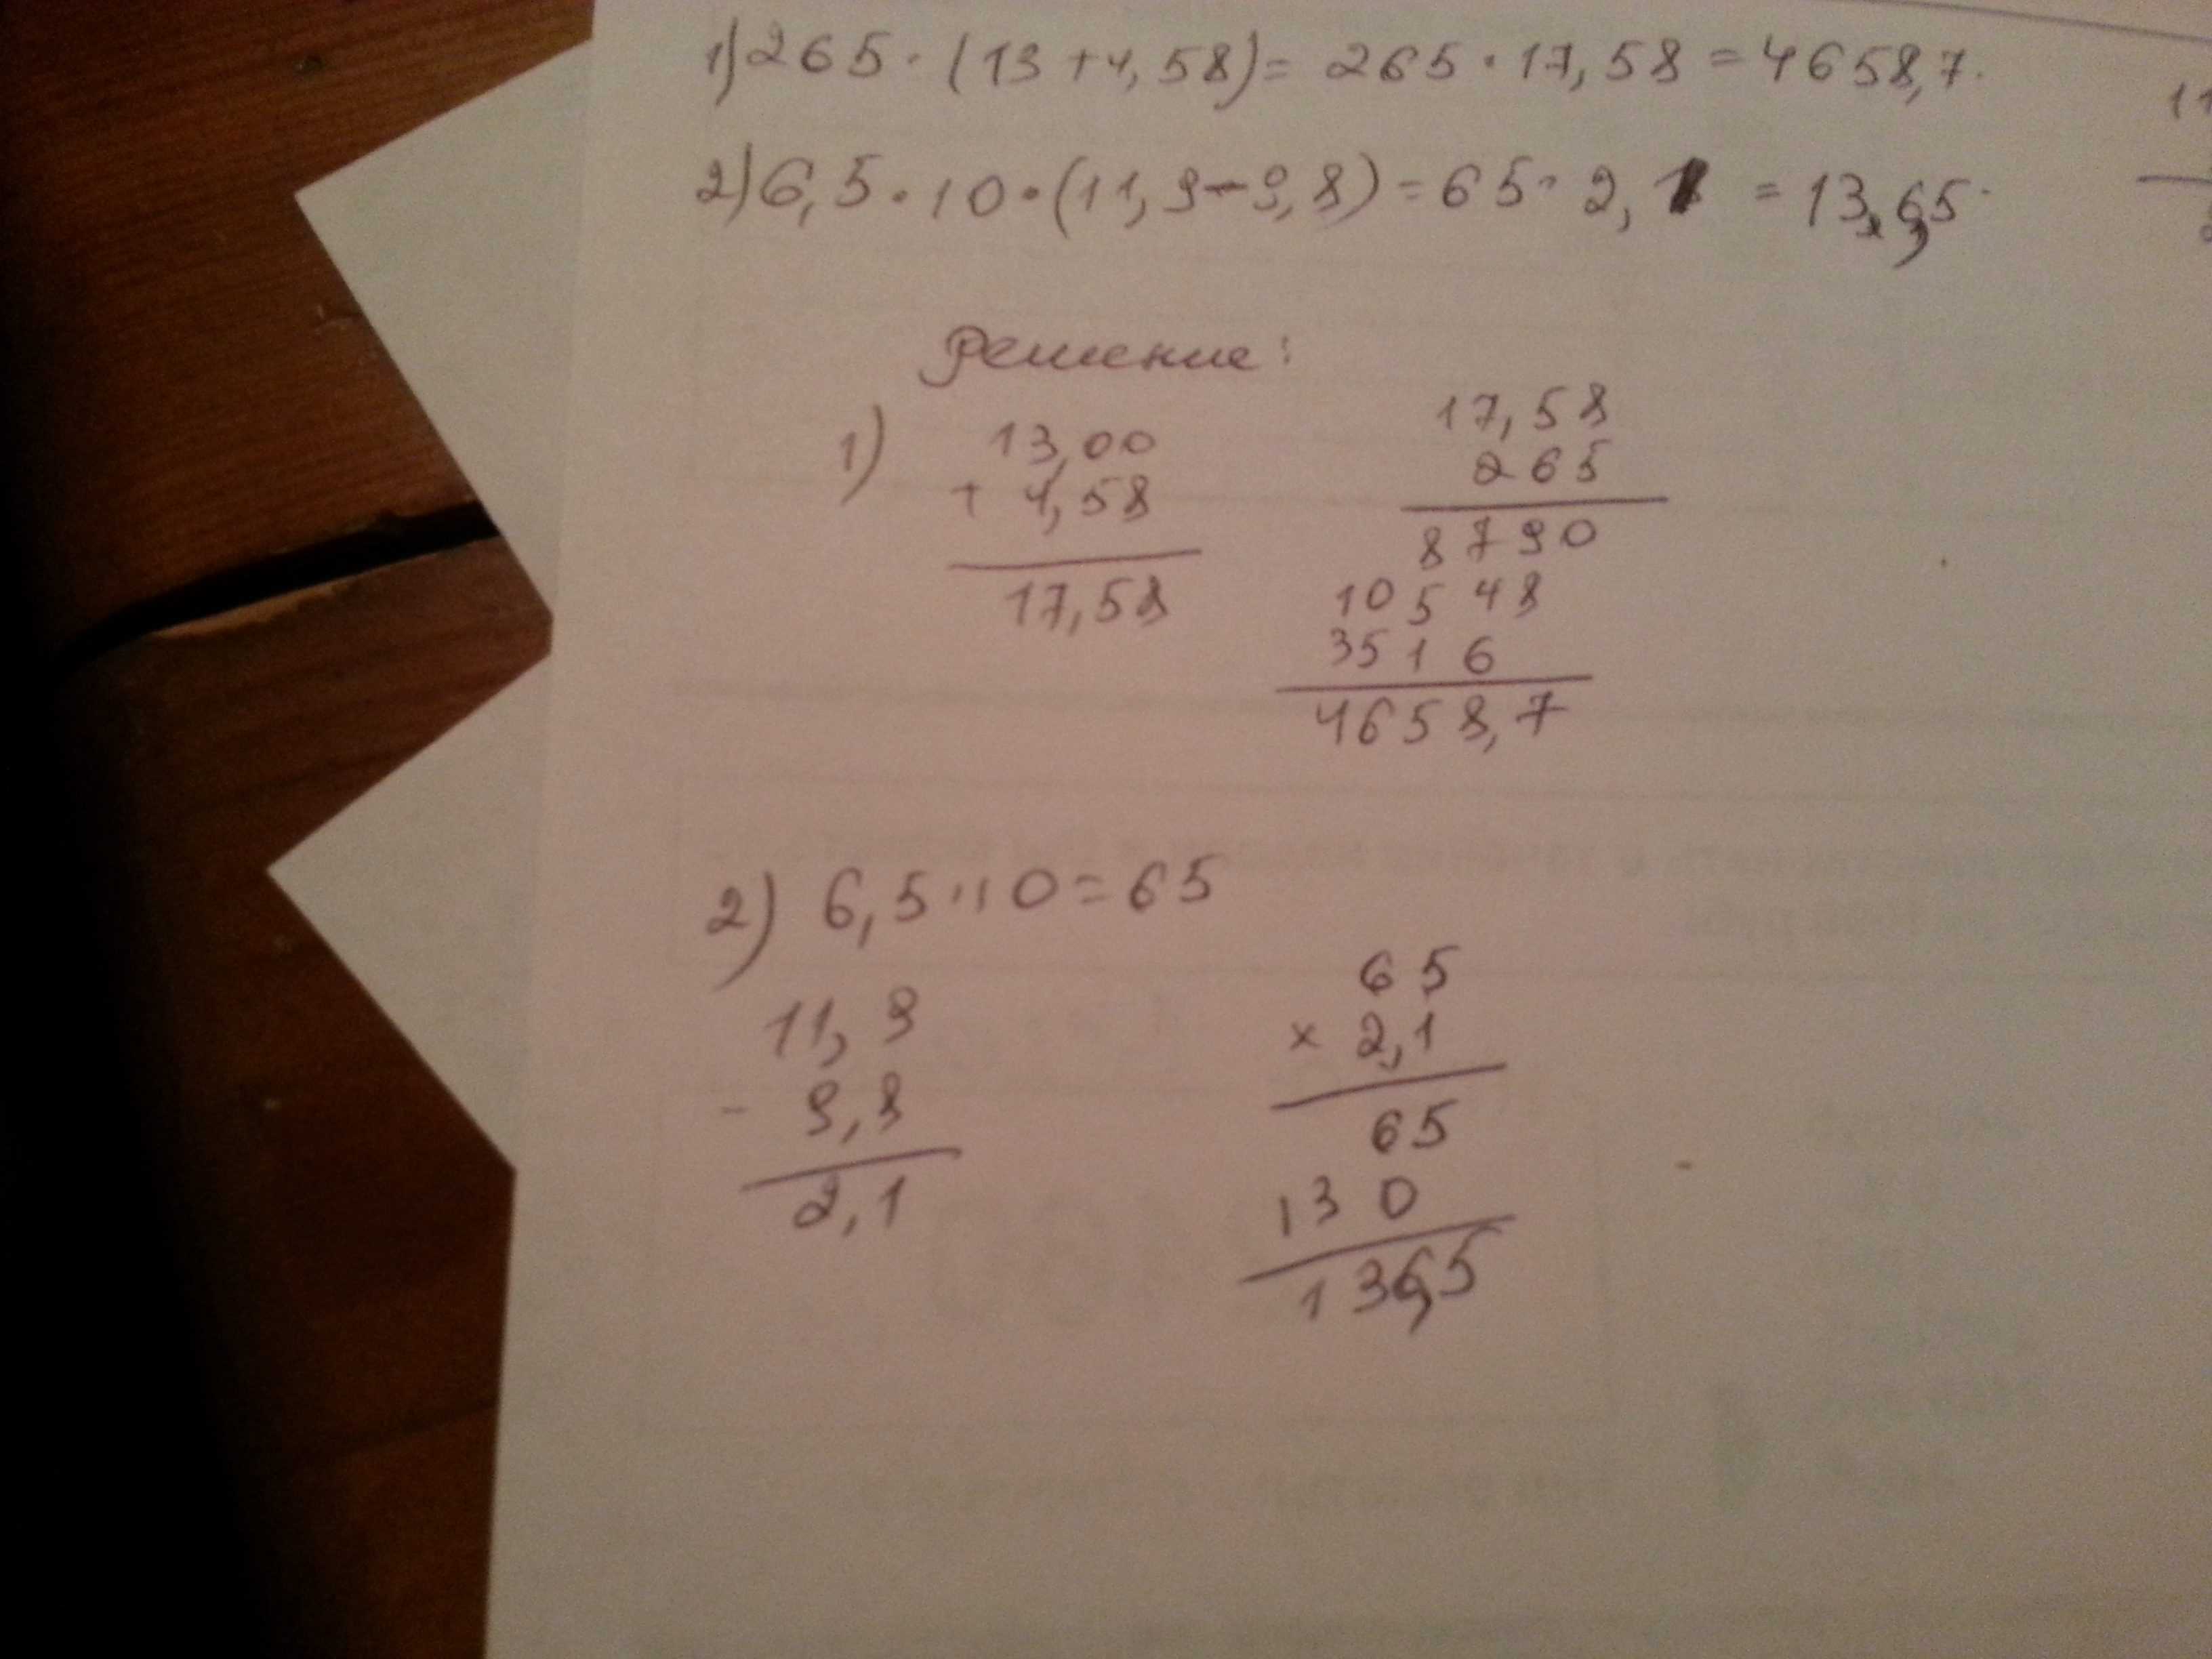 1) 265 · (13 + 4,58) = 265 · 17,58 = 4658,7.
2) 6,5 · 10 · (11,9 - 9,8) = 65 · 2,1 = 136,5
Решение:
1) 13,00
+ 4,58
17,58
17,58
265
8790
10548
3516
4658,7
2) 6,5 · 10 = 65
11,9
- 9,8
2,1
65
× 2,1
65
130
136,5